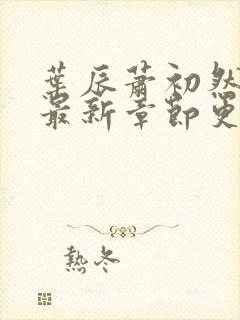 葉辰蕭初然
最新章節更
熱冬